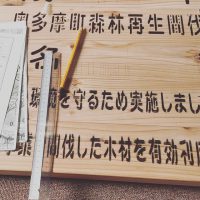 奥多摩町森林再生間伐
名
環境を守るため実施しまし
間伐した木材を有効利用